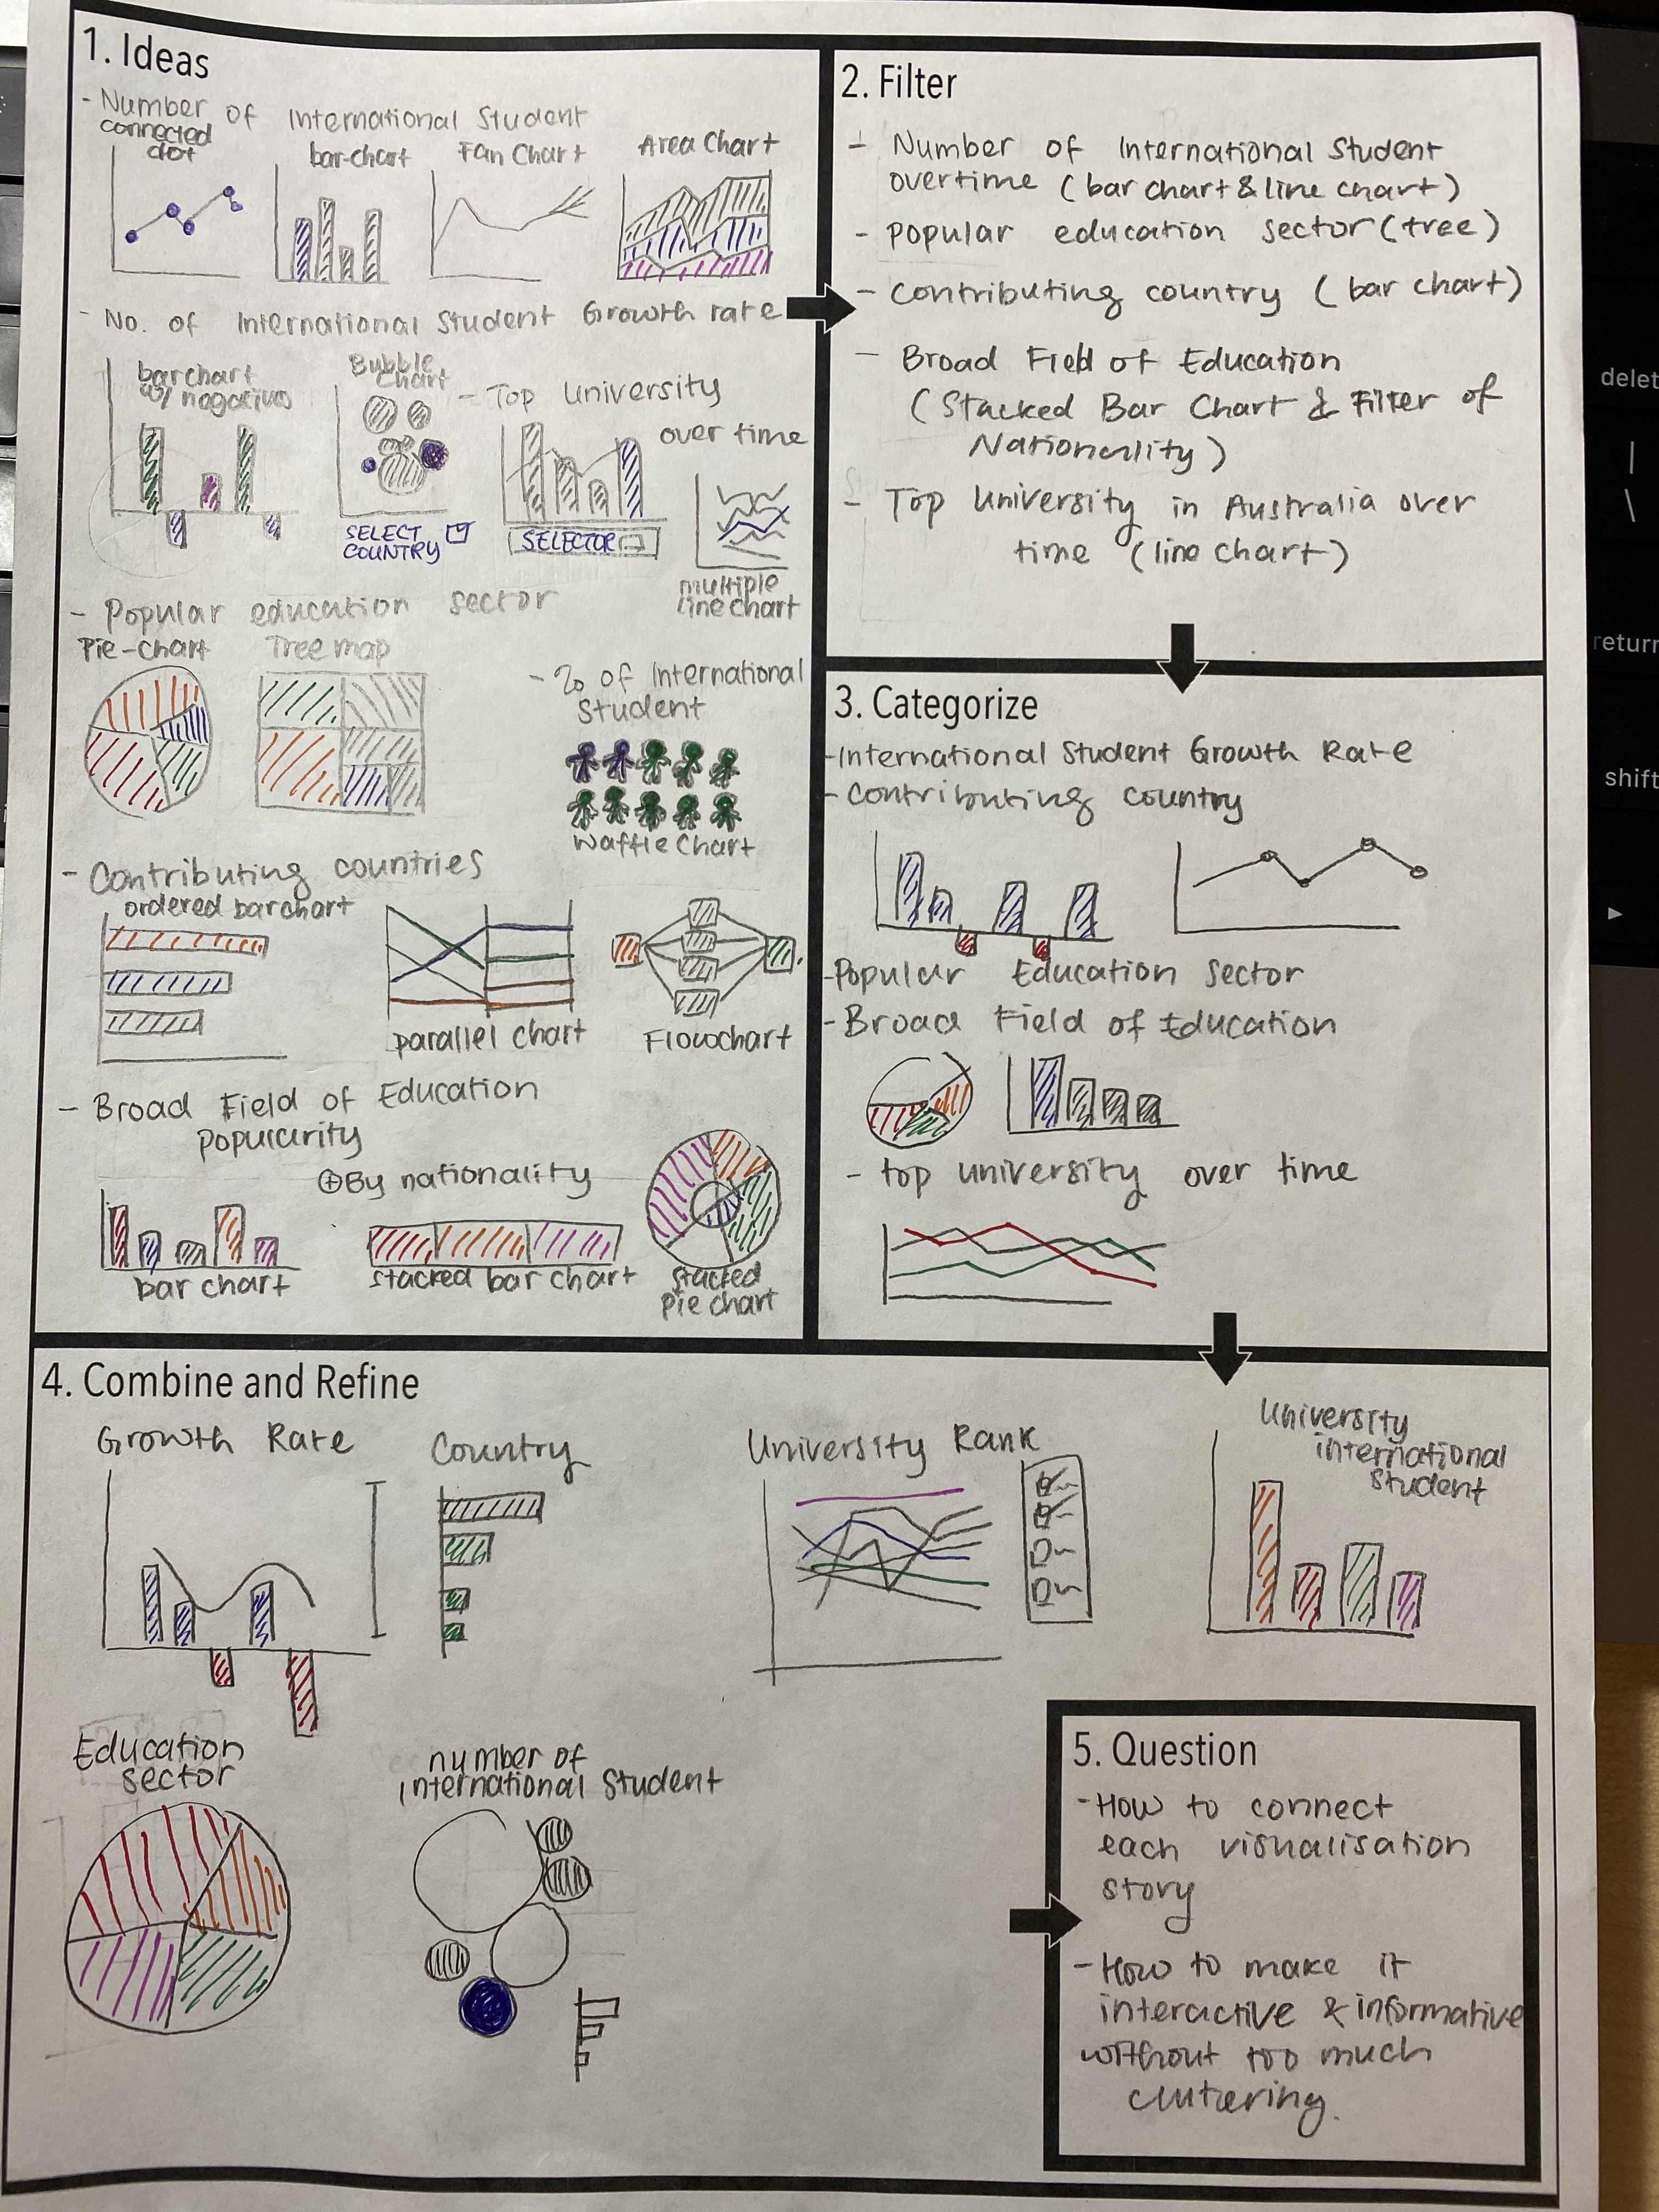 1. Ideas
- Number of International Student
connected
dot
bar-chart
Fan Chart
Area Chart
- No. of International Student Growth rate
barchart
w/ negatives
Bubble
Chart
SELECT
COUNTRY
- Top University
over time
SELECTOR
multiple
line chart
- Popular education sector
Pie-chart
Tree map
- % of International
Student
Waffle Chart
- Contributing countries
ordered barchart
parallel chart
Flowchart
- Broad Field of Education
popularity
+ By nationality
bar chart
stacked bar chart
stacked
pie chart
2. Filter
- Number of International Student
overtime (bar chart & line chart)
- popular education sector (tree)
- contributing country (bar chart)
- Broad Field of Education
(Stacked Bar Chart & Filter of
Nationality)
- Top University in Australia over
time (line chart)
3. Categorize
- International Student Growth Rate
- contributing country
- Popular Education Sector
- Broad Field of Education
- top university over time
4. Combine and Refine
Growth Rate
Country
University Rank
University
international
student
Education
sector
number of
international student
5. Question
- How to connect
each visualisation
story
- How to make it
interactive & informative
without too much
clutering.
delet
|
\
return
shift